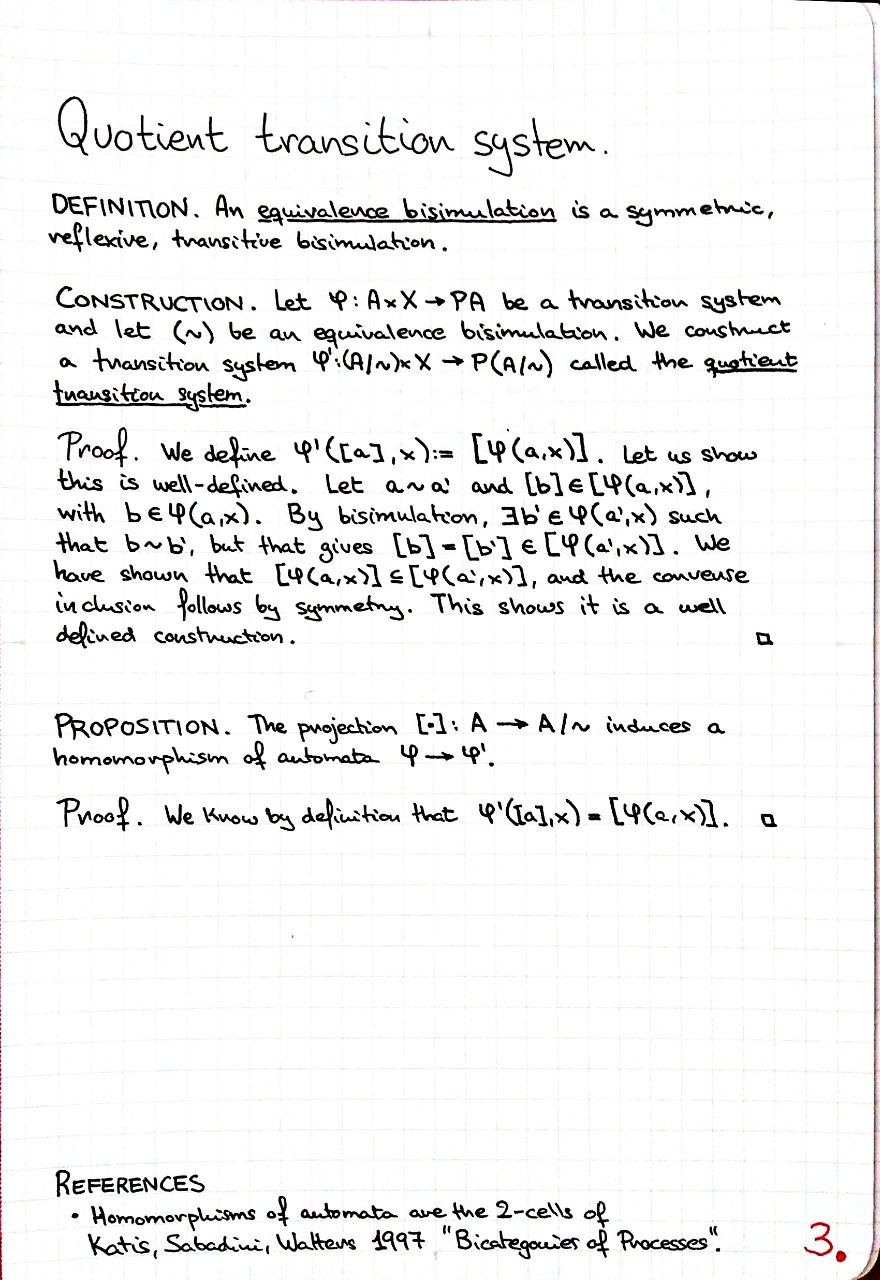 Quotient transition system.
DEFINITION. An equivalence bisimulation is a symmetric,
reflexive, transitive bisimulation.
CONSTRUCTION. Let φ: A×X → PA be a transition system
and let (~) be an equivalence bisimulation. We construct
a transition system φ':(A/~)×X → P(A/~) called the quotient
transition system.
Proof. We define φ'([a],x):= [φ(a,x)]. Let us show
this is well-defined. Let a~a' and [b]∈[φ(a,x)],
with b∈φ(a,x). By bisimulation, ∃b'∈φ(a',x) such
that b~b', but that gives [b]=[b'] ∈ [φ(a',x)]. We
have shown that [φ(a,x)] ⊆ [φ(a',x)], and the converse
inclusion follows by symmetry. This shows it is a well
defined construction. □
PROPOSITION. The projection [·]: A → A/~ induces a
homomorphism of automata φ → φ'.
Proof. We know by definition that φ'([a],x) = [φ(a,x)]. □
REFERENCES
• Homomorphisms of automata are the 2-cells of
Katis, Sabadini, Walters 1997 "Bicategories of Processes".
3.